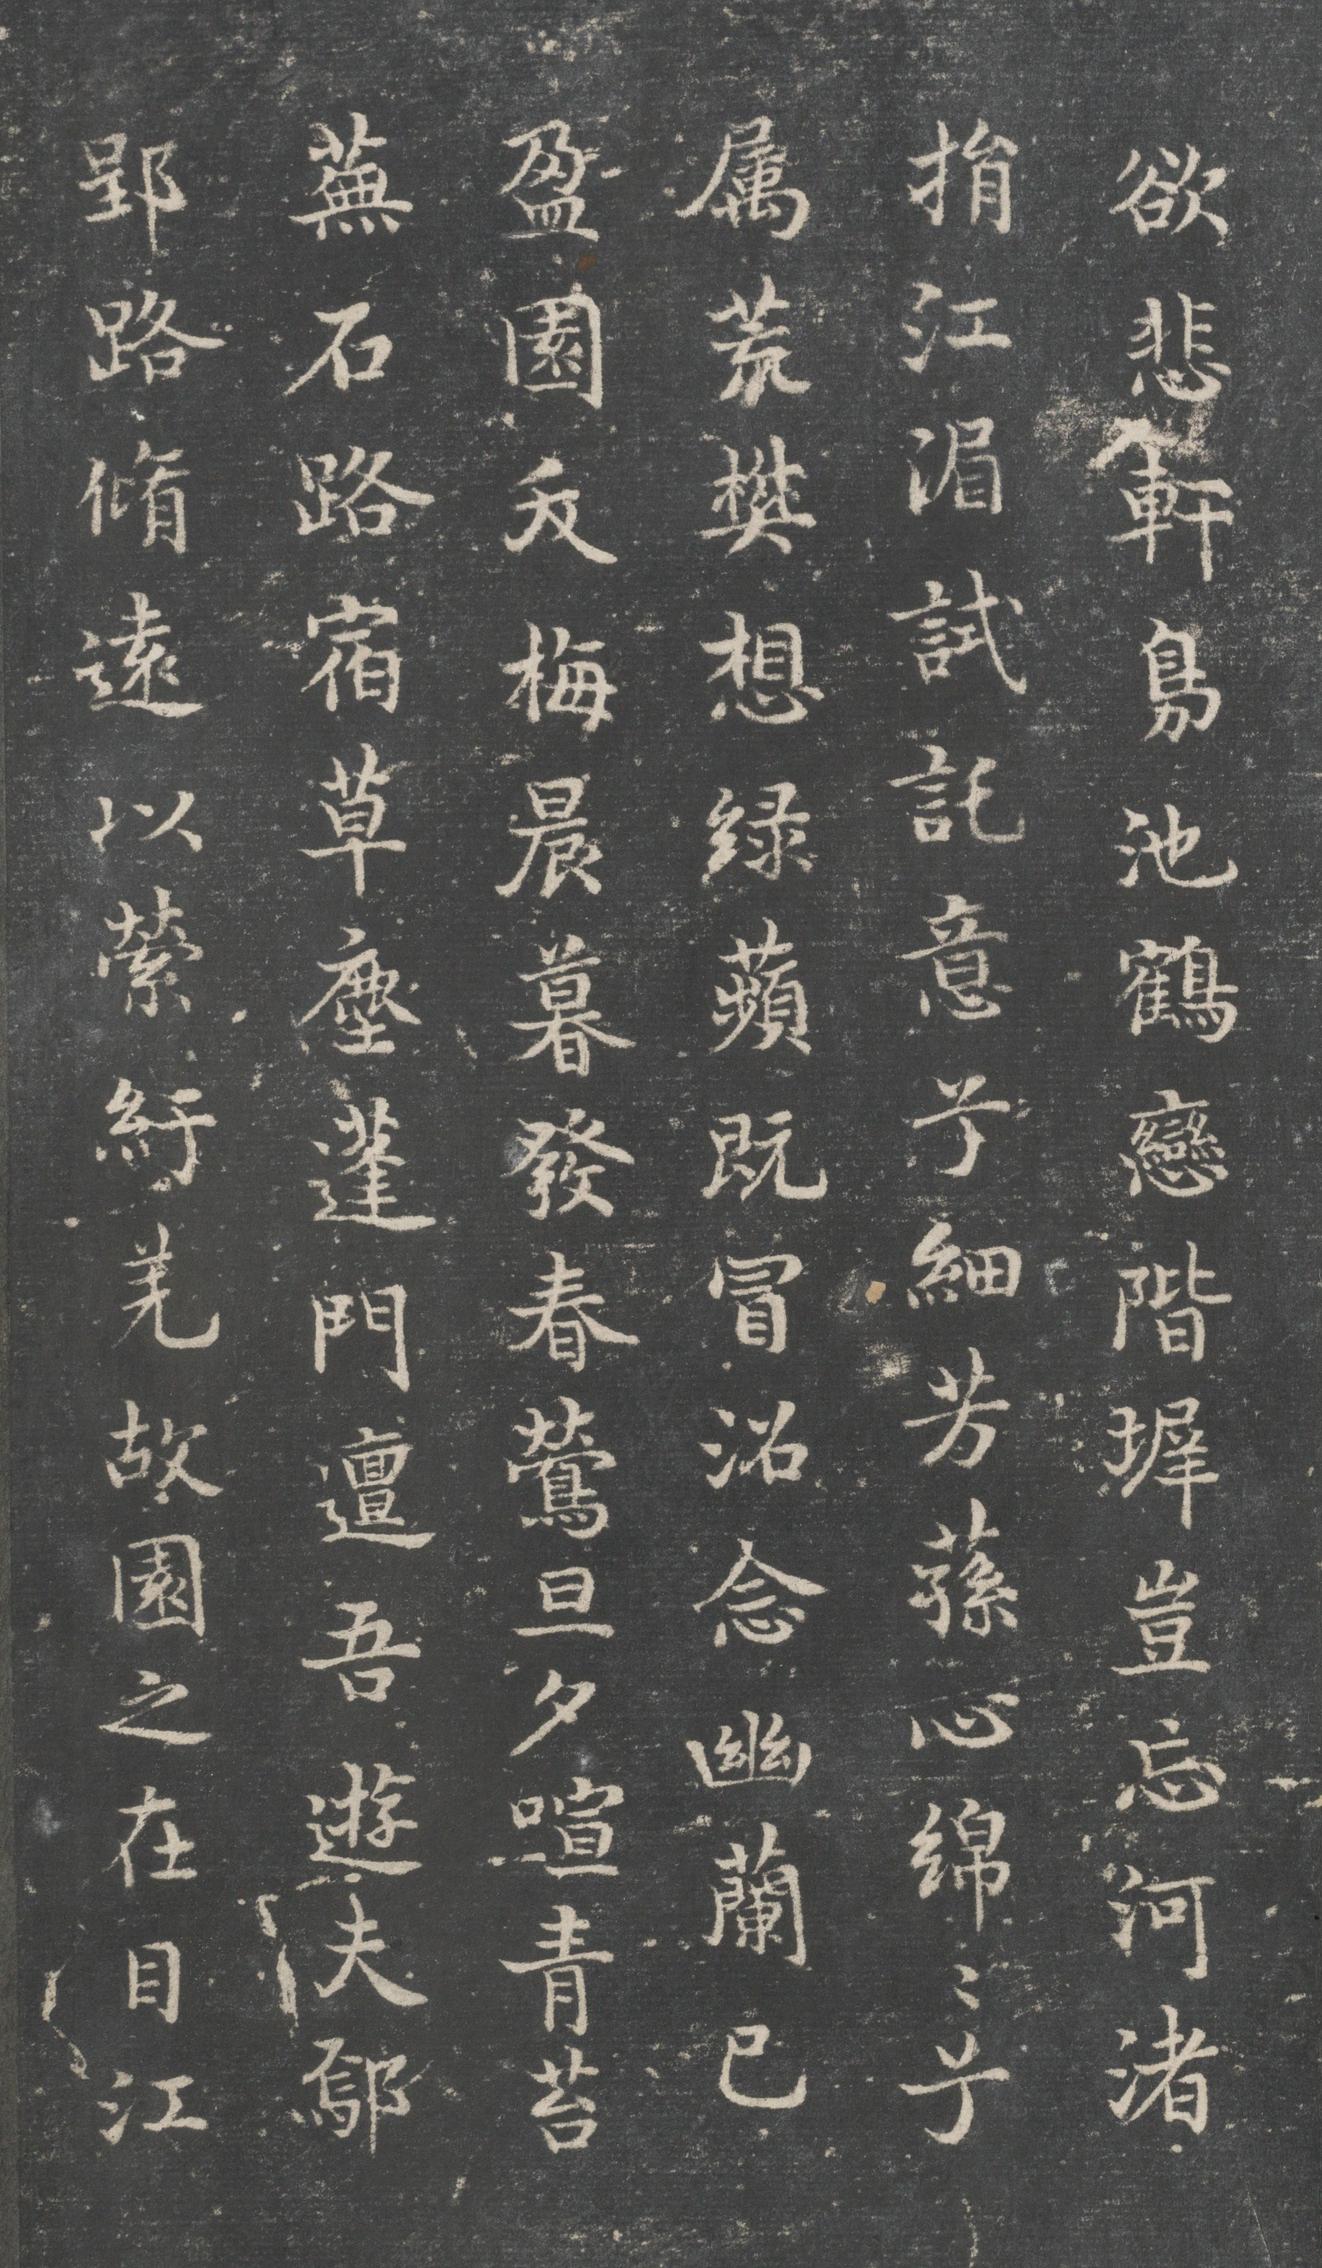 欲悲軒鳥池鶴戀階墀豈忘河渚
捐江湄試託意兮細芳蓀心綿〻兮
属荒樊想緑蘋既冒沼念幽蘭已
盈園夭梅晨暮發春鶯旦夕喧青苔
蕪石路宿草塵蓬門邅吾遊夫鄢
郢路脩遠以縈紆羌故園之在目江